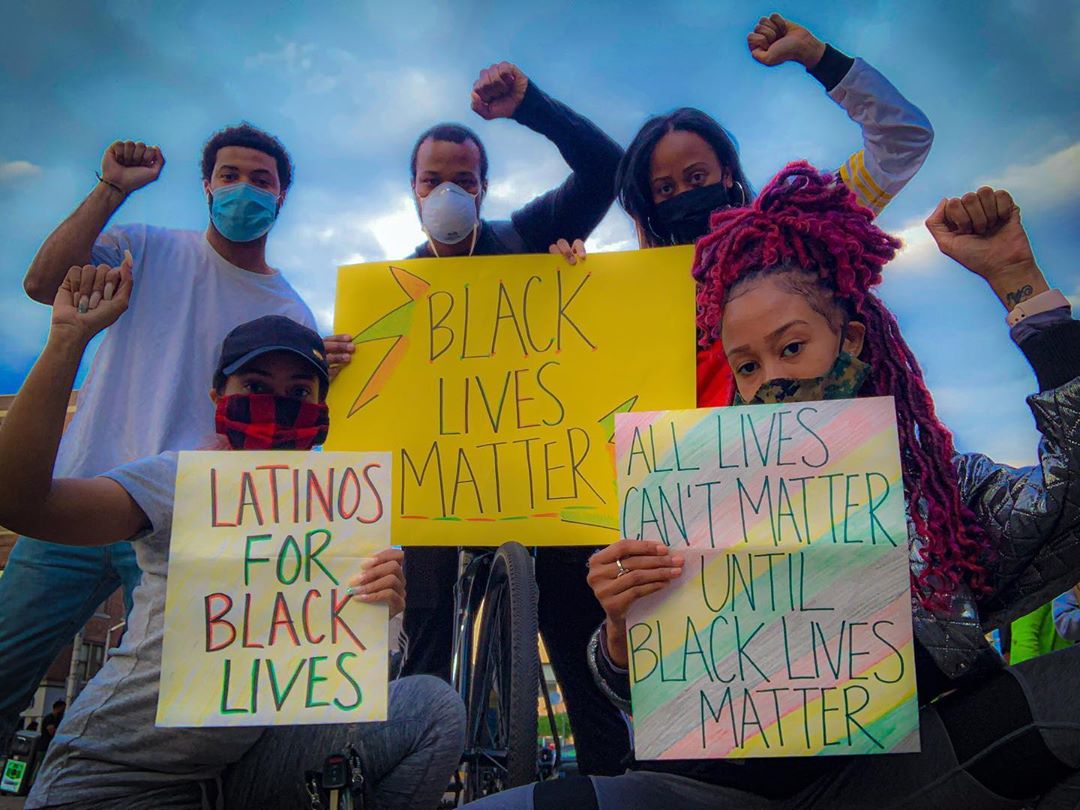 BLACK
LIVES
MATTER
LATINOS
FOR
BLACK
LIVES
ALL LIVES
CAN'T MATTER
UNTIL
BLACK LIVES
MATTER